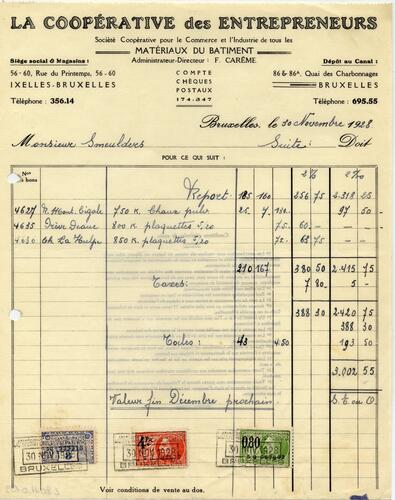 LA COOPÉRATIVE des ENTREPRENEURS
Société Coopérative pour le Commerce et l'Industrie de tous les
MATÉRIAUX DU BATIMENT
Siège social & Magasins :
Administrateur-Directeur : F. CARÊME
Dépôt au Canal :
56 - 60, Rue du Printemps, 56 - 60
COMPTE
86 & 86ᴬ, Quai des Charbonnages
IXELLES-BRUXELLES
CHÈQUES
BRUXELLES
POSTAUX
Téléphone : 356.14
174.347
Téléphone : 695.55
Bruxelles, le 30 Novembre 1928
Monsieur Smeulders Suite : Doit
POUR CE QUI SUIT :
Nos des bons 2% 2‰
Report 185 160 256 75 2.318 25
4627 750 K. Chaux 25 7 97 50
4635 800 K. plaquettes 75 60 -
4630 La Hulpe 850 K. plaquettes 75 63 75
210 167 380 50 2.415 75
Taxes: 7 80 5 -
388 30 2.420 75
388 30
Toiles: 43 4.50 193 50
3.002 55
Valeur fin Décembre prochain S. E. ou O.
30 NOV 1928
BRUXELLES
30 NOV 1928
BRUXELLES
0.80
30 NOV 1928
BRUXELLES
Voir conditions de vente au dos.